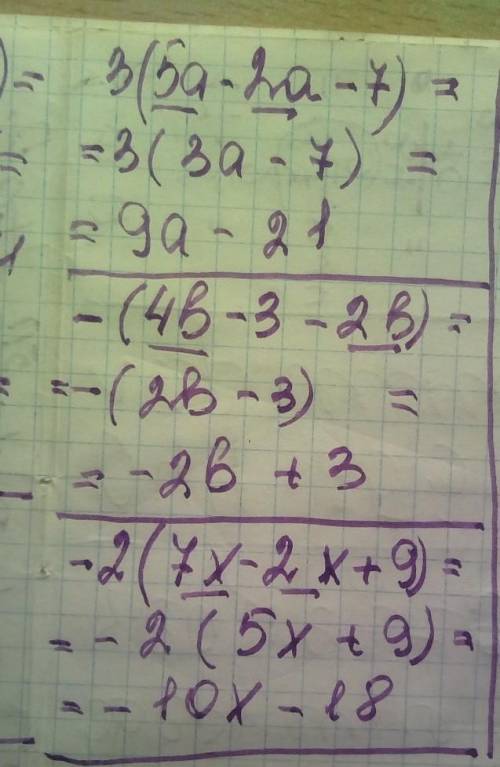 ) = 3(5a - 2a - 7) =
= = 3(3a - 7) =
= 9a - 21
-(4b - 3 - 2b) =
= = -(2b - 3) =
= -2b + 3
-2(7x - 2x + 9) =
= -2(5x + 9) =
= -10x - 18